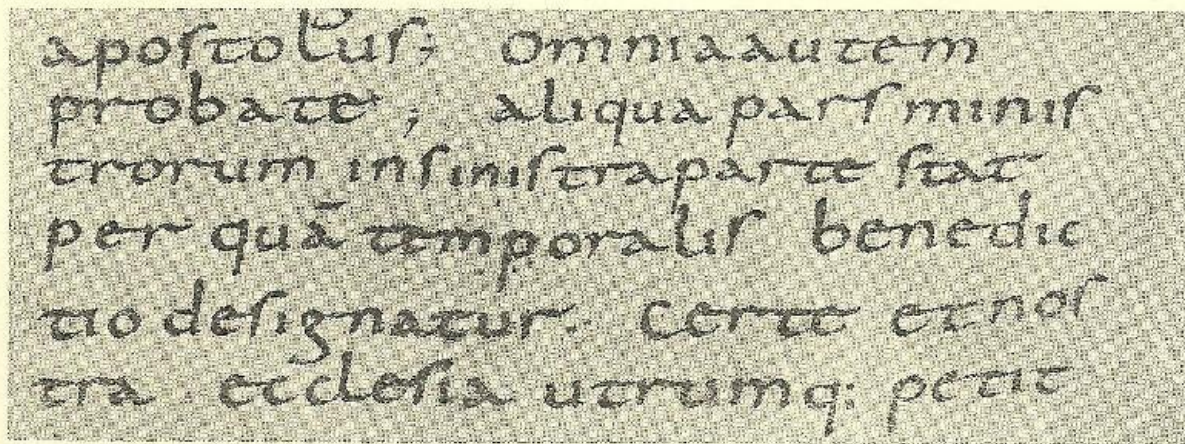 apostolus; Omniaautem
probate; aliqua pars minis
trorum insinistraparte stat
per quā temporalis benedic
tio designatur. Certe etnos
tra ecclesia utrumq: petit